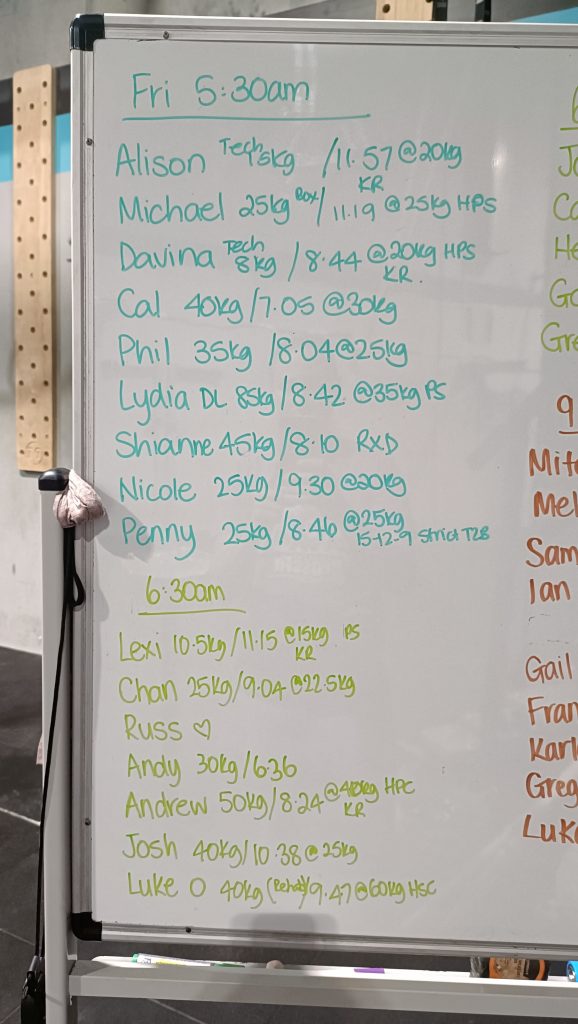 Fri 5:30am
Alison Tech 5kg /11.57 @20kg KR
Michael 25kg Box/ 11.19 @25kg HPS
Davina Tech 8kg /8.44 @20kg HPS KR.
Cal 40kg/7.05 @30kg
Phil 35kg /8.04@25kg
Lydia DL 85kg/8.42 @35kg PS
Shianne 45kg/8.10 RXD
Nicole 25kg/9.30 @20kg
Penny 25kg /8.46 @25kg 15-12-9 Strict T2B
6:30am
Lexi 10.5kg/11.15 @15kg PS KR
Chan 25kg/9.04 @22.5kg
Russ ♡
Andy 30kg/6.36
Andrew 50kg/8.24 @40kg HPC KR
Josh 40kg/10.38@25kg
Luke O 40kg (Rehab)/9.47@60kg HSC
9
Mel
Sam
Ian
Gail
Fran
Karl
Greg
Luke